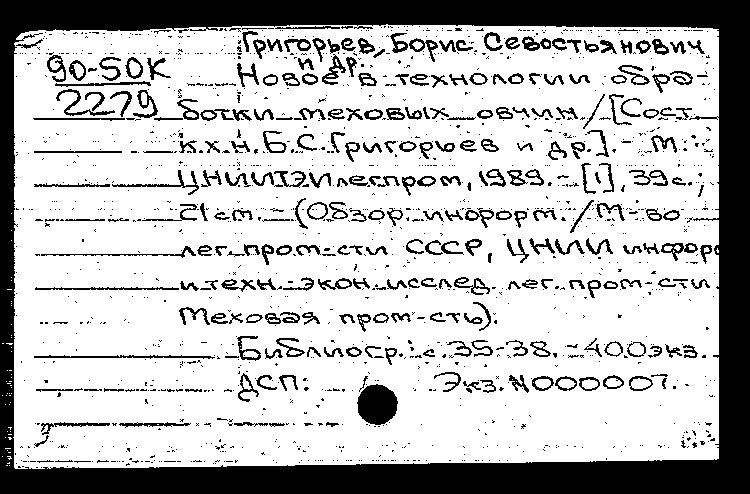 Григорьев, Борис Севостьянович
и др.
90-50К
2279
Новое в технологии обра-
ботки меховых овчин / [Сост.
к.х.н. Б.С. Григорьев и др.]. - М.:
ЦНИИТЭИлегпром, 1989. - [1], 39 с.;
21 см. - (Обзор. информ. / М-во
лег. пром-сти СССР, ЦНИИ информ
и техн.-экон. исслед. лег. пром-сти.
Меховая пром-сть).
Библиогр.: с. 35-38. - 400 экз.
ДСП: Экз. N 000007.